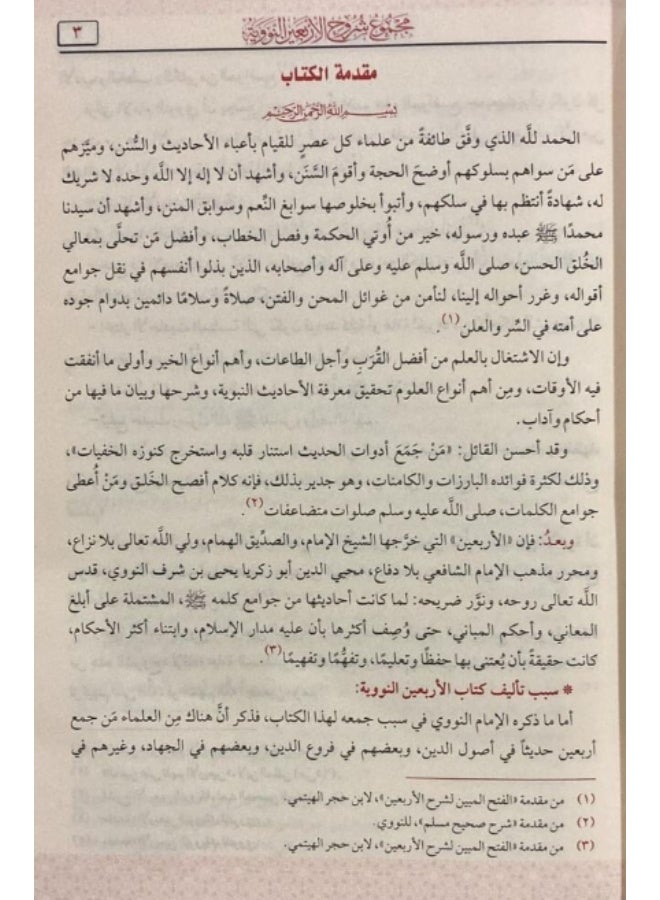 ٣
مجموع شروح الأربعين النووية
مقدمة الكتاب
بسم الله الرحمن الرحيم
الحمد لله الذي وفَّق طائفةً من علماء كل عصرٍ للقيام بأعباء الأحاديث والسُّنن، وميَّزهم
على مَن سواهم بسلوكهم أوضحَ الحجة وأقومَ السَّنَن، وأشهد أن لا إله إلا الله وحده لا شريك
له، شهادةً أنتظم بها في سلكهم، وأتبوأ بخلوصها سوابغ النِّعم وسوابق المنن، وأشهد أن سيدنا
محمدًا ﷺ عبده ورسوله، خير من أُوتي الحكمة وفصل الخطاب، وأفضل مَن تحلَّى بمعالي
الخُلق الحسن، صلى الله وسلم عليه وعلى آله وأصحابه، الذين بذلوا أنفسهم في نقل جوامع
أقواله، وغرر أحواله إلينا، لنأمن من غوائل المحن والفتن، صلاةً وسلامًا دائمين بدوام جوده
على أمته في السِّر والعلن(١).
وإن الاشتغال بالعلم من أفضل القُرَبِ وأجل الطاعات، وأهم أنواع الخير وأولى ما أنفقت
فيه الأوقات، ومِن أهم أنواع العلوم تحقيق معرفة الأحاديث النبوية، وشرحها وبيان ما فيها من
أحكام وآداب.
وقد أحسن القائل: «مَنْ جَمَعَ أدوات الحديث استنار قلبه واستخرج كنوزه الخفيات»،
وذلك لكثرة فوائده البارزات والكامنات، وهو جدير بذلك، فإنه كلام أفصح الخَلق ومَنْ أُعطى
جوامع الكلمات، صلى الله عليه وسلم صلوات متضاعفات(٢).
وبعدُ: فإن «الأربعين» التي خرَّجها الشيخ الإمام، والصدِّيق الهمام، ولي الله تعالى بلا نزاع،
ومحرر مذهب الإمام الشافعي بلا دفاع، محيي الدين أبو زكريا يحيى بن شرف النووي، قدس
الله تعالى روحه، ونوَّر ضريحه: لما كانت أحاديثها من جوامع كلمه ﷺ، المشتملة على أبلغ
المعاني، وأحكم المباني، حتى وُصِف أكثرها بأن عليه مدار الإسلام، وابتناء أكثر الأحكام،
كانت حقيقةً بأن يُعتنى بها حفظًا وتعليمًا، وتفهُّمًا وتفهيمًا(٣).
* سبب تأليف كتاب الأربعين النووية:
أما ما ذكره الإمام النووي في سبب جمعه لهذا الكتاب، فذكر أنَّ هناك مِن العلماء مَن جمع
أربعين حديثاً في أصول الدين، وبعضهم في فروع الدين، وبعضهم في الجهاد، وغيرهم في
(١) من مقدمة «الفتح المبين لشرح الأربعين»، لابن حجر الهيتمي.
(٢) من مقدمة «شرح صحيح مسلم»، للنووي.
(٣) من مقدمة «الفتح المبين لشرح الأربعين»، لابن حجر الهيتمي.